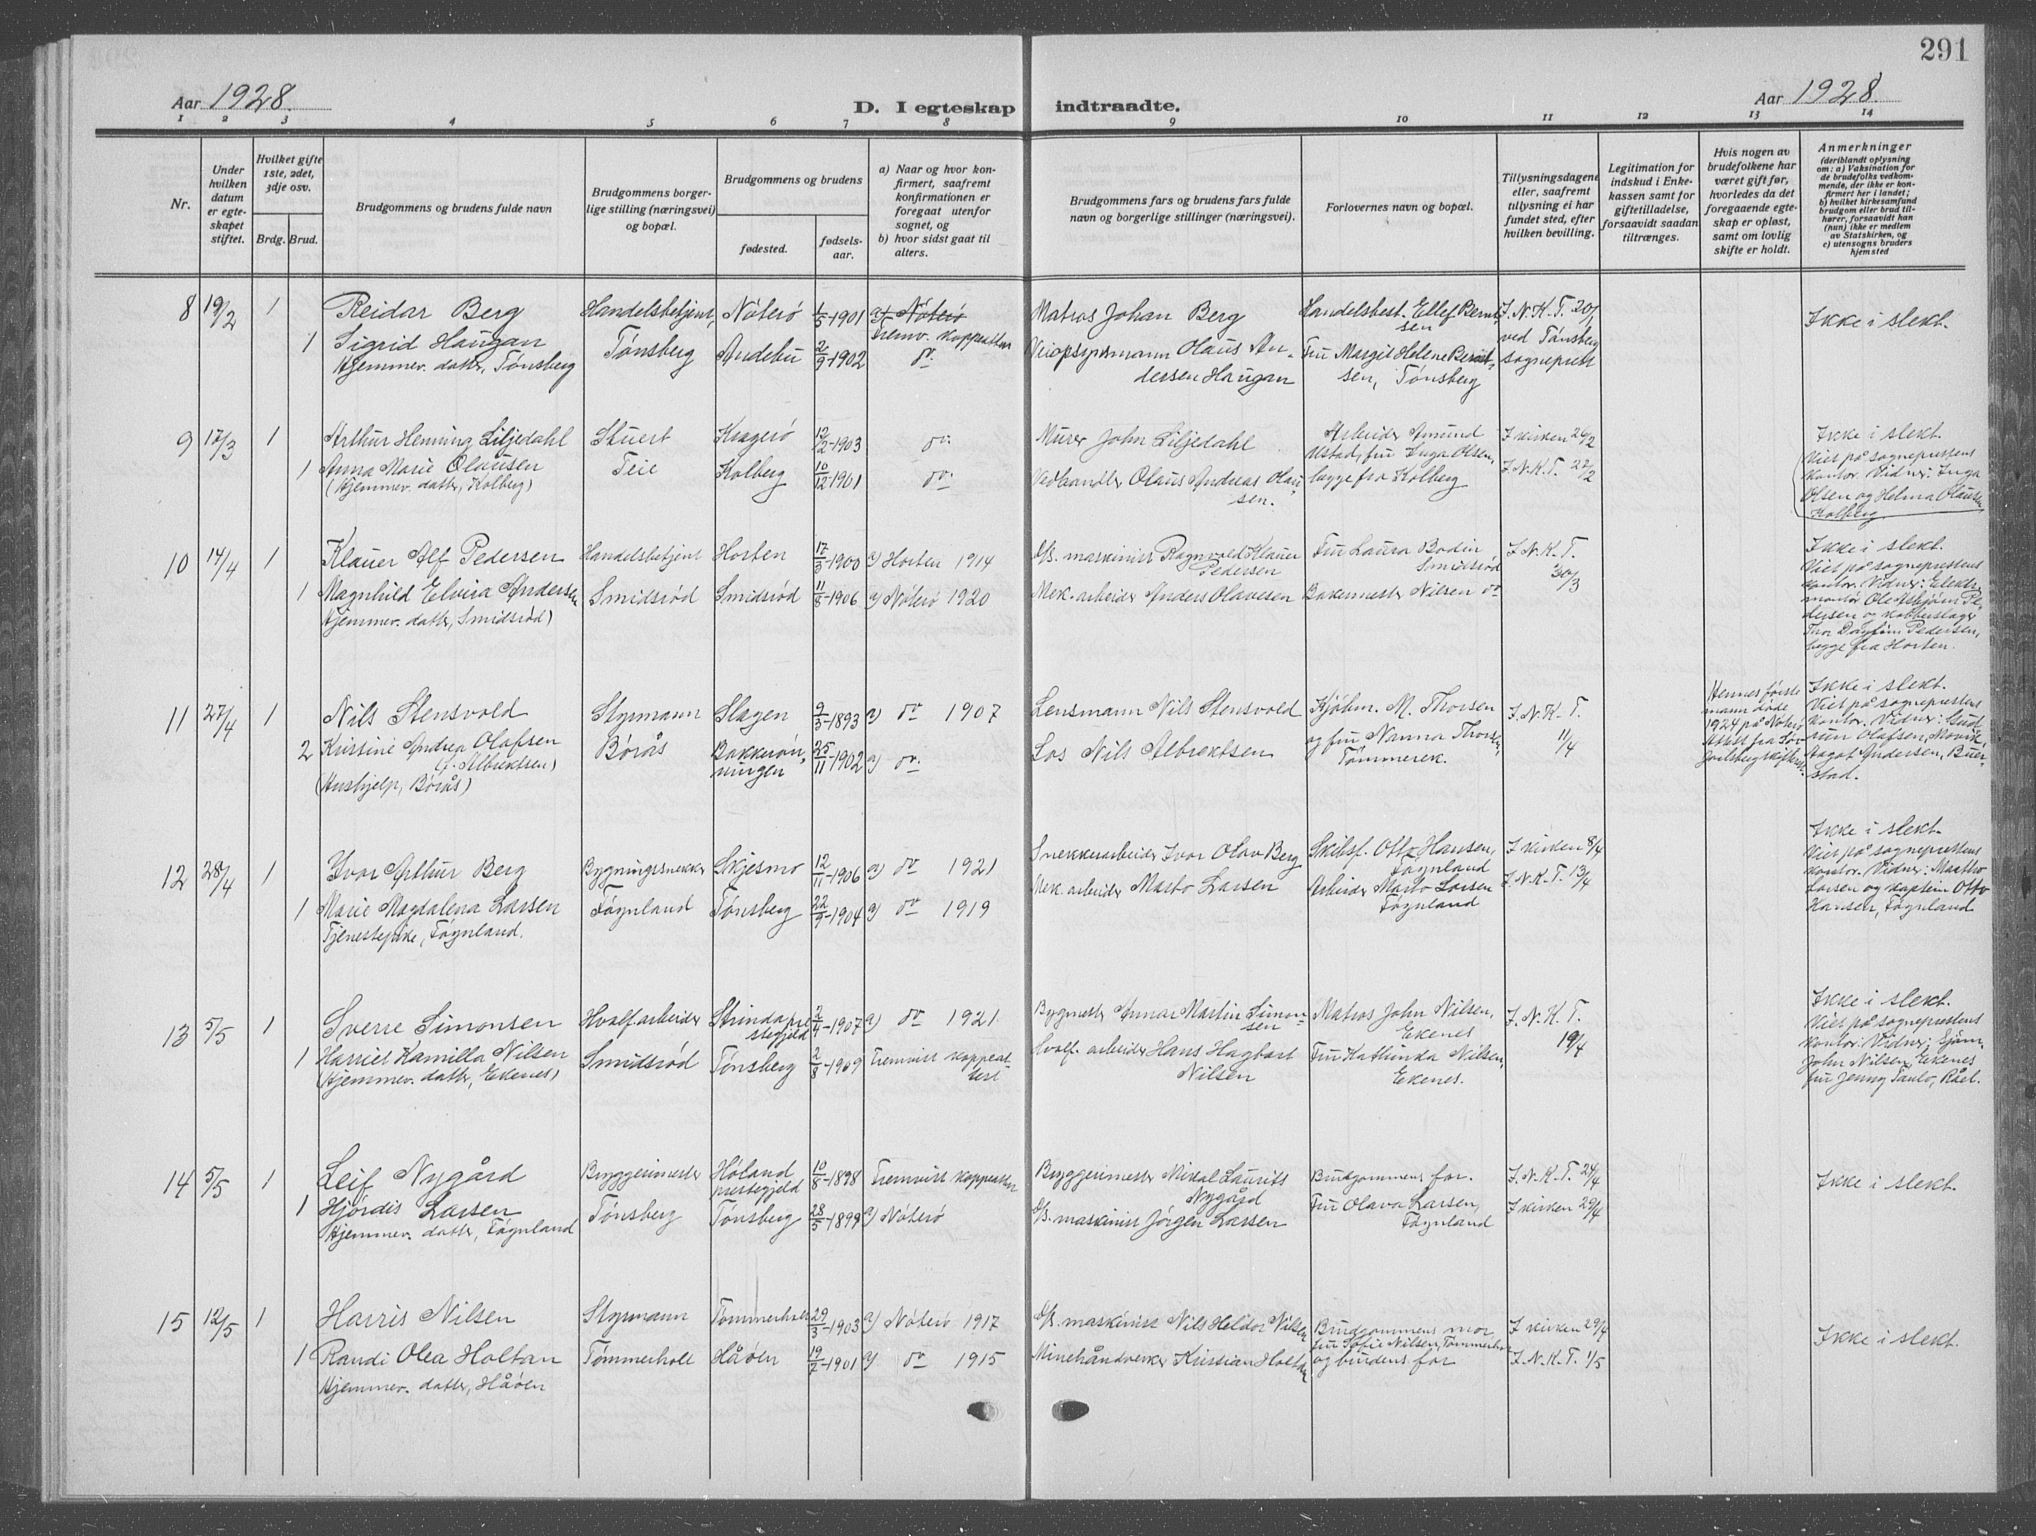 291
Aar 1928.
D. I egteskap indtraadte.
Aar 1928.
1 2 3 4 5 6 7 8 9 10 11 12 13 14
Nr.
Under hvilken datum er egteskapet stiftet.
Hvilket gifte 1ste, 2det, 3dje osv.
Brdg. Brud.
Brudgommens og brudens fulde navn
Brudgommens borgerlige stilling (næringsvei) og bopæl.
Brudgommens og brudens
fødested.
fødselsaar.
a) Naar og hvor konfirmert, saafremt konfirmationen er foregaat utenfor sognet, og
b) hvor sidst gaat til alters.
Brudgommens fars og brudens fars fulde navn og borgerlige stillinger (næringsvei).
Forlovernes navn og bopæl.
Tillysningsdagene eller, saafremt tillysning ei har fundet sted, efter hvilken bevilling.
Legitimation for indskud i Enkekassen samt for giftetilladelse, forsaavidt saadan tiltrænges.
Hvis nogen av brudefolkene har været gift før, hvorledes da det foregaaende egteskap er opløst, samt om lovlig skifte er holdt.
Anmerkninger
(deriblandt oplysning om: a) Vaksination for de brudefolks vedkommende, der ikke er konfirmert her i landet; b) hvilket kirkesamfund brudgom eller brud tilhører, forsaavidt han (hun) ikke er medlem av Statskirken, og c) utensogns bruders hjemsted
8 19/2 1 Reidar Berg Handelsbetjent, Nøterø 1/5-1901 a) Nøterø Matros Johan Berg Handelsbest. Ellef Berntsen I. N. K. T. 20/1 Ikke i slekt.
Fremv. koppeattest
1 Sigrid Haugan Tønsberg Andebu 2/9-1902 do. Veiopsynsmann Olaus Andersen Haugan Fru Margit Helene Berntsen, Tønsberg ved Tønsberg sogneprest
Hjemmev. datter, Tønsberg
9 17/3 1 Arthur Henning Liljedahl Stuert Kragerø 12/2-1903 do. Murer John Liljedahl Arbeider Amund I kirken 26/2 Ikke i slekt.
1 Anna Marie Olausen Teie Kolberg 10/12-1901 do. Vedhandler Olaus Andreas Olausen. Ulstad, fru Inga Olsen, begge fra Kolberg I. N. K. T. 27/2
(Hjemmev. datter, Kolberg)
Viet på sogneprestens
kontor. Vidner: Inga
Olsen og Helma Olausen
Kolberg
10 14/4 1 Klauer Alf Pedersen Handelsbetjent Horten 17/3-1900 a) Horten 1914 D/S. maskinist Ragnvald Klauer Pedersen Fru Laura Bodin, Smidsrød I. N. K. T. 30/3 Ikke i slekt.
1 Magnhild Elvira Andersen Smidsrød Smidsrød 11/8-1906 a) Nøterø 1920 Mek. arbeider Anders Olavesen Bakermester Nilsen do
Hjemmev. datter, Smidsrød)
Viet på sogneprestens
kontor. Vidner: Elektr.
montør Ole Asbjørn Pedersen og kobberslager
Thor Dagfinn Pedersen,
begge fra Horten.
11 27/4 1 Nils Stensvold Styrmann Slagen 9/3-1893 a) do 1907 Lensmann Nils Stensvold Kjøbm. M. Thorsen I. N. K. T. 11/4
2 Kristine Andrea Olafsen Børås Bakkerønningen 25/11-1902 a) do. Los Nils Albrektsen og fru Nanna Thorsen, Tømmerek.
(f. Albrektsen)
(Hushjelp, Børås)
Hennes første
mann døde
1924 på Nøterø
Attest fra Sør-
Jarlsberg skifterett.
Ikke i slekt.
Viet på sogneprestens
kontor. Vidner: Gudrun Olafsen, Movik,
Aagot Andersen, Buerstad.
12 28/4 1 Ivar Arthur Berg Bygningssnekker Skjesmo 12/11-1906 a) do 1921 Snekkerarbeider Ivar Olav Berg Skibsf. Otto Hansen, Føynland I kirken 8/4 Ikke i slekt.
1 Marie Magdalena Larsen Føynland Tønsberg 22/9-1904 a) do 1919 Mek. arbeider Marto Larsen Arbeider Marto Larsen Føynland I. N. K. T. 13/4
Tjenestepike, Føynland.
Viet på sogneprestens
kontor. Vidner: Martho
Larsen og kaptein Otto
Hansen, Føynland
13 5/5 1 Sverre Simonsen Hvalf. arbeider Strinda prestegjeld 2/4-1907 a) do 1921 Bygmester Annar Martin Simonsen Matros John Nilsen, Ekenes I. N. K. T. 19/4 Ikke i slekt.
1 Harriet Kamilla Nilsen Smidsrød Tønsberg 2/8-1909 Fremvist koppeattest Hvalf. arbeider Hans Hagbart Nilsen Fru Kathinda Nilsen, Ekenes.
(Hjemmev. datter, Ekenes)
Viet på sogneprestens
kontor: Vidner: Sjøm.
John Nilsen, Ekenes
fru Jenny Taulo, Råel.
14 5/5 1 Leif Nygård Bryggerimester Høland prestegjeld 10/8-1898 Fremvist koppeattest Bryggerimester Mikal Laurits Nygård Brudgommens far. I. N. K. T. 24/4 Ikke i slekt.
1 Hjørdis Larsen Tønsberg Tønsberg 28/5-1899 a) Nøterø D/S. maskinist Jørgen Larsen Fru Olava Larsen, Føynland I kirken 29/4
Hjemmev. datter, Føynland
15 12/5 1 Harris Nilsen Styrmann Tømmerholt 29/3-1903 a) Nøterø 1917 D/S. maskinist Nils Heldor Nilsen Brudgommens mor I kirken 29/4 Ikke i slekt.
1 Randi Olea Holtan Tømmerholt Håøen 19/2-1901 a) do 1915 Minehåndverker Kristian Holtan fru Sofie Nilsen, Tømmerholt og brudens far I. N. K. T. 1/5
Hjemmev. datter, Håøen